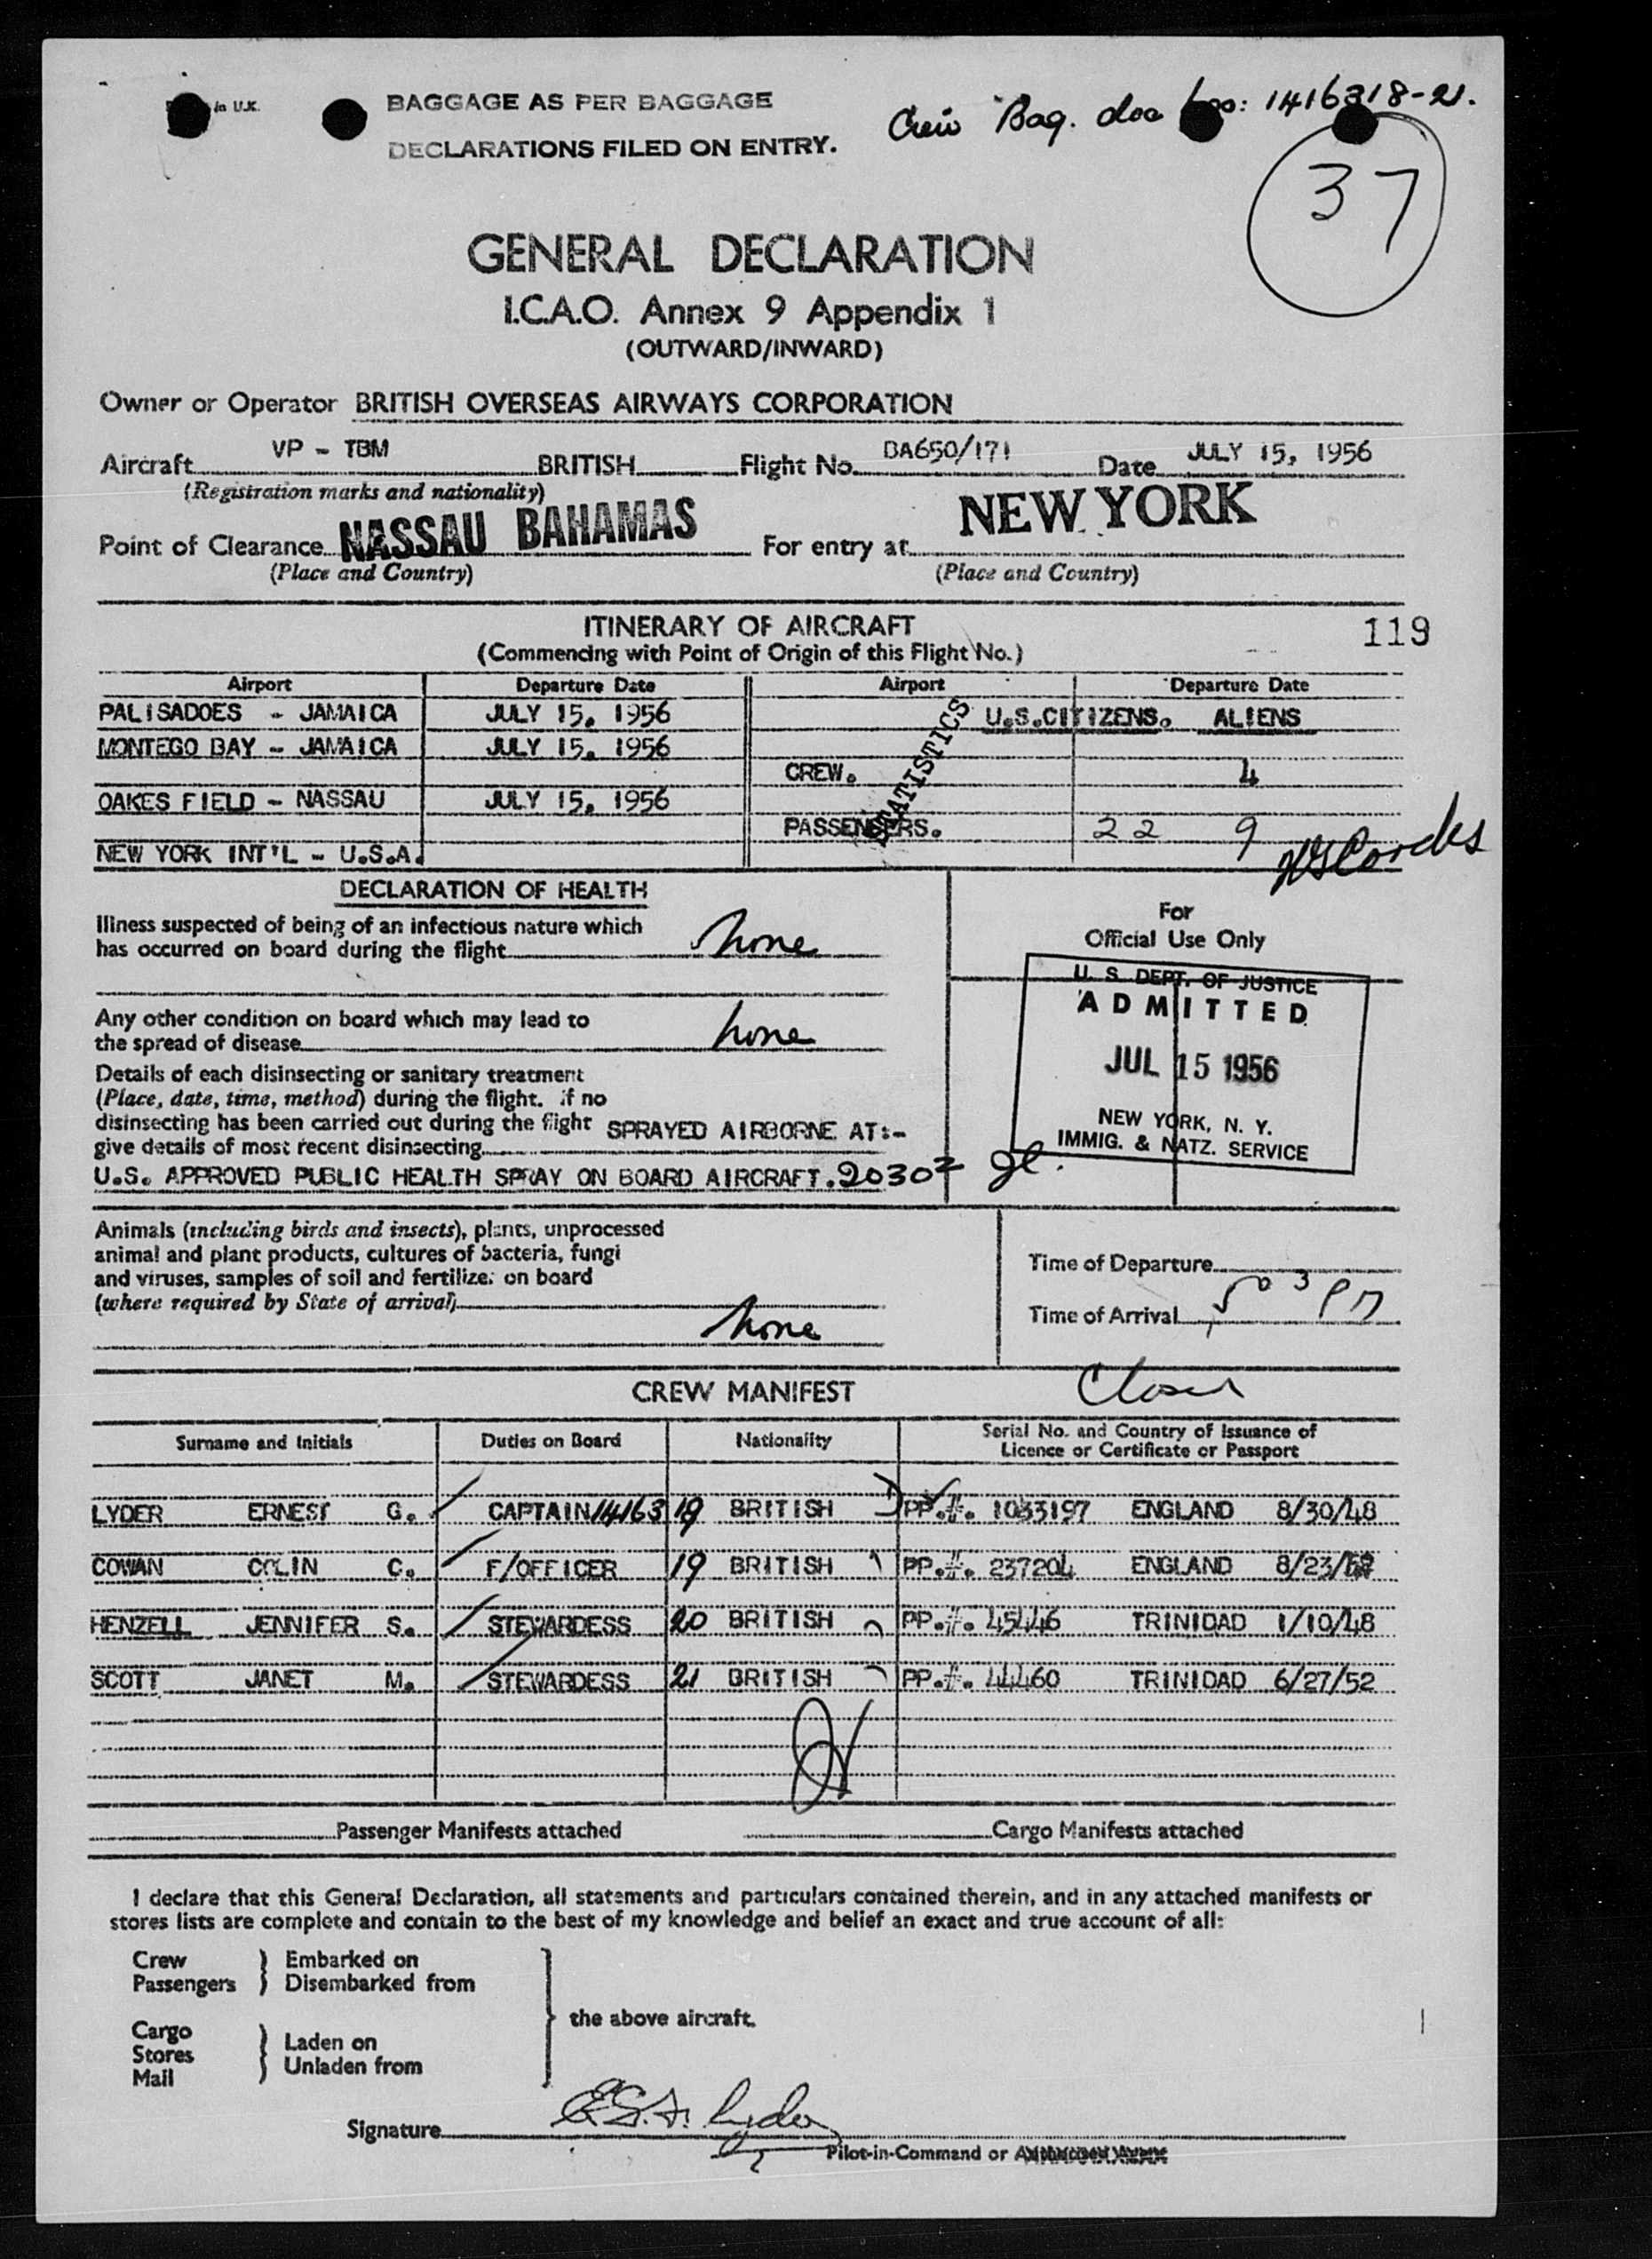 in U.K.
BAGGAGE AS PER BAGGAGE
DECLARATIONS FILED ON ENTRY.
Crew Bag. dec nos: 1416318-21.
37
GENERAL DECLARATION
I.C.A.O. Annex 9 Appendix 1
(OUTWARD/INWARD)
Owner or Operator BRITISH OVERSEAS AIRWAYS CORPORATION
Aircraft VP - TBM BRITISH Flight No. BA650/171 Date JULY 15, 1956
(Registration marks and nationality)
Point of Clearance NASSAU BAHAMAS For entry at NEW YORK
(Place and Country) (Place and Country)
ITINERARY OF AIRCRAFT 119
(Commencing with Point of Origin of this Flight No.)
Airport Departure Date Airport Departure Date
PALISADOES - JAMAICA JULY 15, 1956 U.S.CITIZENS. ALIENS
MONTEGO BAY - JAMAICA JULY 15, 1956
STATISTICS
CREW. 4
OAKES FIELD - NASSAU JULY 15, 1956
PASSENGERS. 22 9
NEW YORK INT'L - U.S.A.
DECLARATION OF HEALTH
For
Official Use Only
Illness suspected of being of an infectious nature which
has occurred on board during the flight none
U. S. DEPT. OF JUSTICE
ADMITTED
JUL 15 1956
NEW YORK, N. Y.
IMMIG. & NATZ. SERVICE
Any other condition on board which may lead to
the spread of disease none
Details of each disinsecting or sanitary treatment
(Place, date, time, method) during the flight. If no
disinsecting has been carried out during the flight SPRAYED AIRBORNE AT:-
give details of most recent disinsecting
U.S. APPROVED PUBLIC HEALTH SPRAY ON BOARD AIRCRAFT. 2030z
Animals (including birds and insects), plants, unprocessed
animal and plant products, cultures of bacteria, fungi
and viruses, samples of soil and fertilizer on board
(where required by State of arrival) none
Time of Departure
Time of Arrival 503 PM
CREW MANIFEST
Surname and Initials Duties on Board Nationality Serial No. and Country of Issuance of
Licence or Certificate or Passport
LYDER ERNEST G. CAPTAIN 1416318 BRITISH PP.#. 1033197 ENGLAND 8/30/48
COWAN COLIN C. F/OFFICER 19 BRITISH PP.#. 237204 ENGLAND 8/23/
HENZELL JENNIFER S. STEWARDESS 20 BRITISH PP.#. 45446 TRINIDAD 1/10/48
SCOTT JANET M. STEWARDESS 21 BRITISH PP.#. 44460 TRINIDAD 6/27/52
Passenger Manifests attached Cargo Manifests attached
I declare that this General Declaration, all statements and particulars contained therein, and in any attached manifests or
stores lists are complete and contain to the best of my knowledge and belief an exact and true account of all:
Crew } Embarked on
Passengers } Disembarked from
the above aircraft.
Cargo
Stores } Laden on
Mail } Unladen from
Signature E.G. Lyder
Pilot-in-Command or